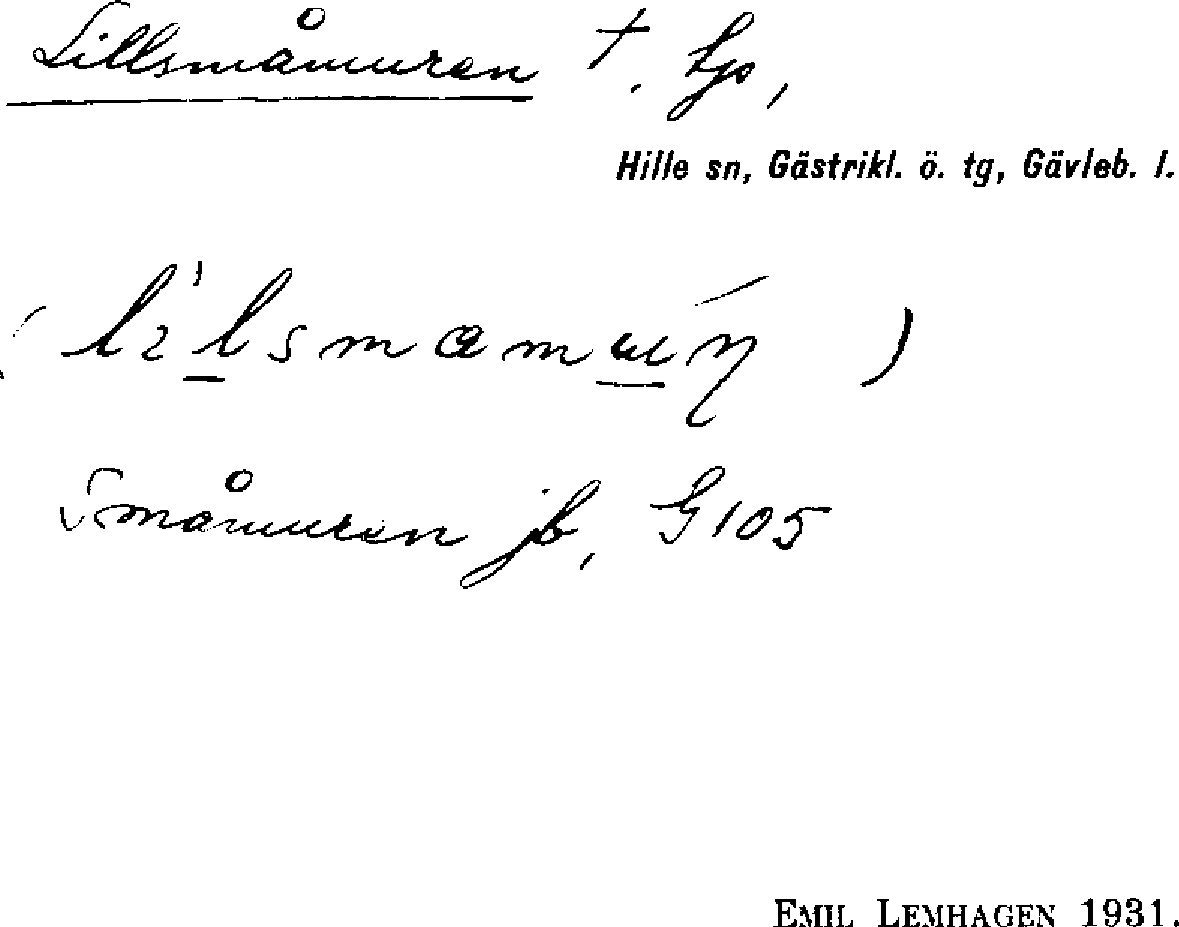 Lillsmåmuren †. tjo,
Hille sn, Gästrikl. ö. tg, Gävleb. l.
Småmuren jb, G 105
EMIL LEMHAGEN 1931.